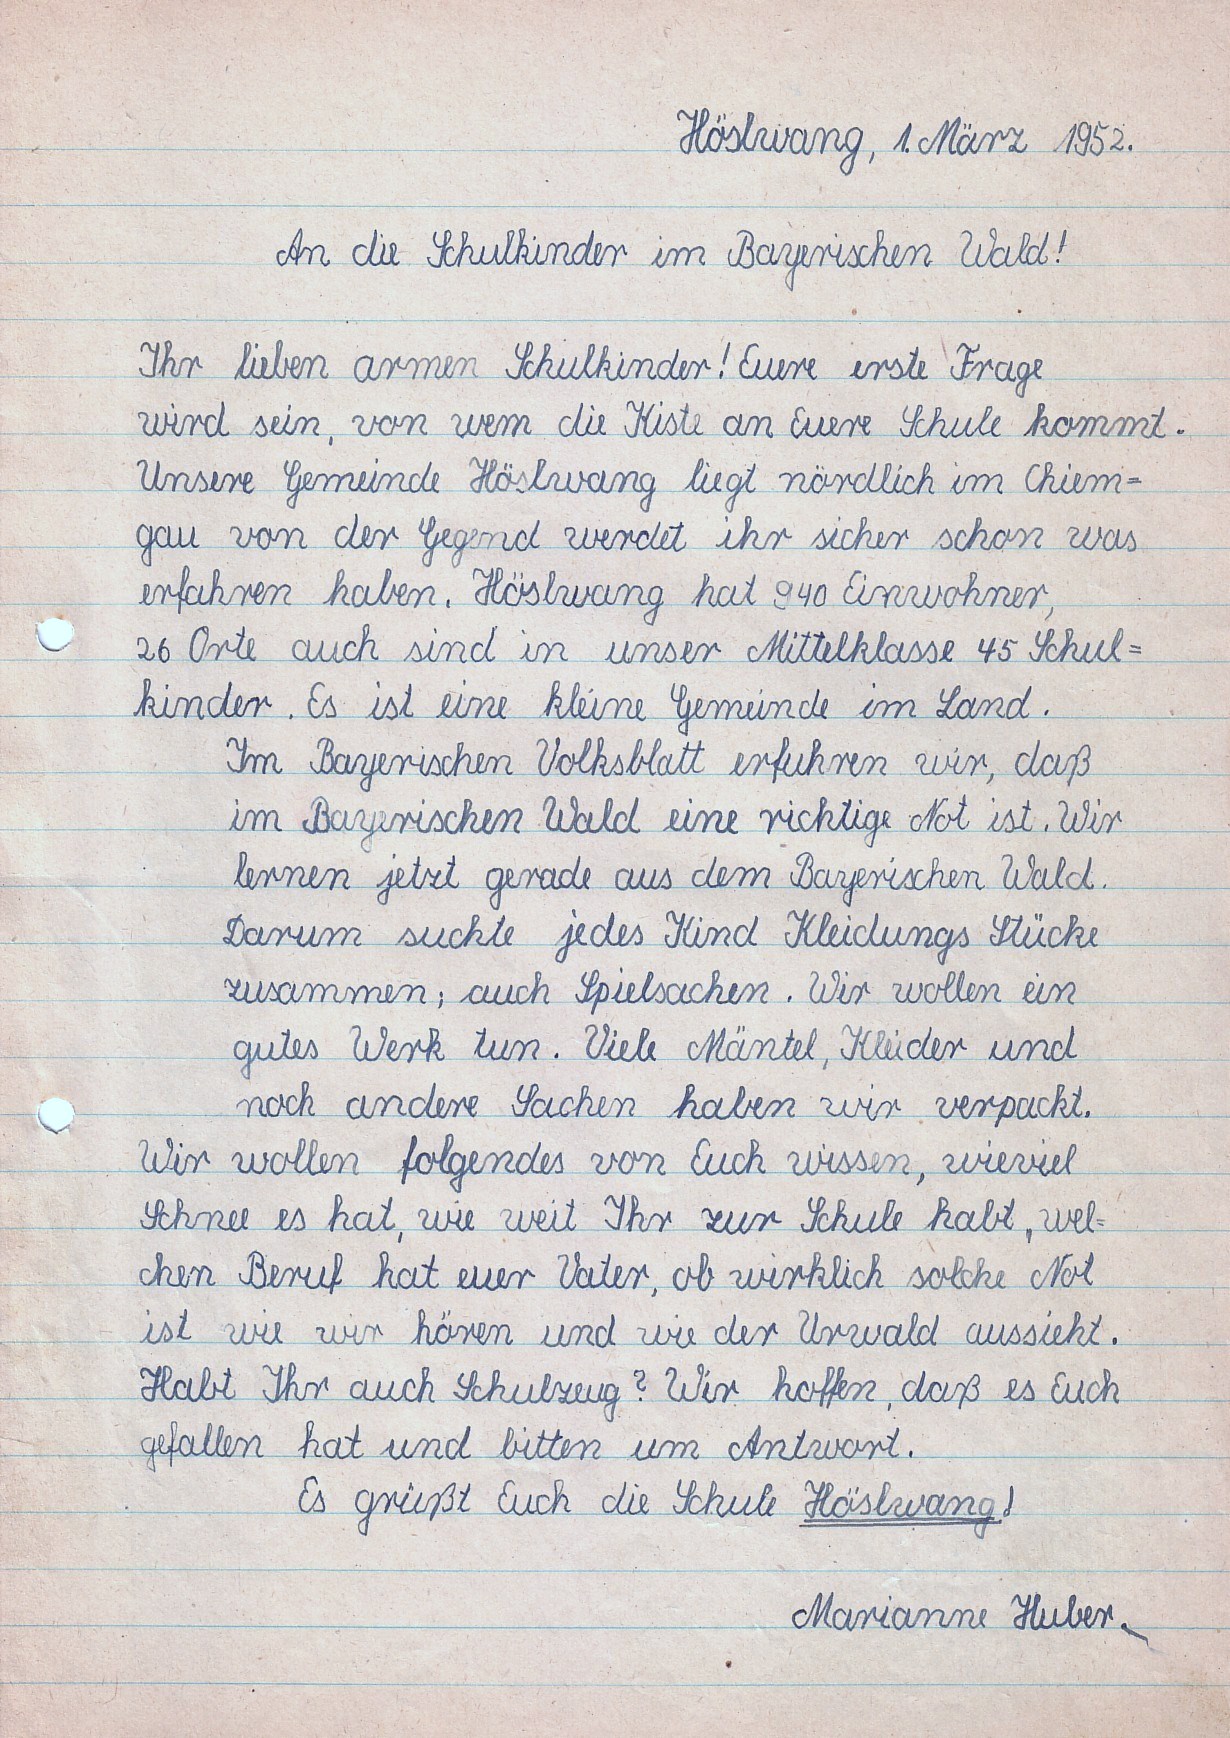 Höslwang, 1. März 1952.
An die Schulkinder im Bayerischen Wald!
Ihr lieben armen Schulkinder! Euere erste Frage
wird sein, von wem die Kiste an Euere Schule kommt.
Unsere Gemeinde Höslwang liegt nördlich im Chiem=
gau von der Gegend werdet ihr sicher schon was
erfahren haben. Höslwang hat 940 Einwohner,
26 Orte auch sind in unser Mittelklasse 45 Schul=
kinder. Es ist eine kleine Gemeinde im Land.
Im Bayerischen Volksblatt erfuhren wir, daß
im Bayerischen Wald eine richtige Not ist. Wir
lernen jetzt gerade aus dem Bayerischen Wald.
Darum suchte jedes Kind Kleidungs Stücke
zusammen; auch Spielsachen. Wir wollen ein
gutes Werk tun. Viele Mäntel, Kleider und
noch andere Sachen haben wir verpackt.
Wir wollen folgendes von Euch wissen, wieviel
Schnee es hat, wie weit Ihr zur Schule habt, wel=
chen Beruf hat euer Vater, ob wirklich solche Not
ist wie wir hören und wie der Urwald aussieht.
Habt Ihr auch Schulzeug? Wir hoffen, daß es Euch
gefallen hat und bitten um Antwort.
Es grüßt Euch die Schule Höslwang!
Marianne Huber.